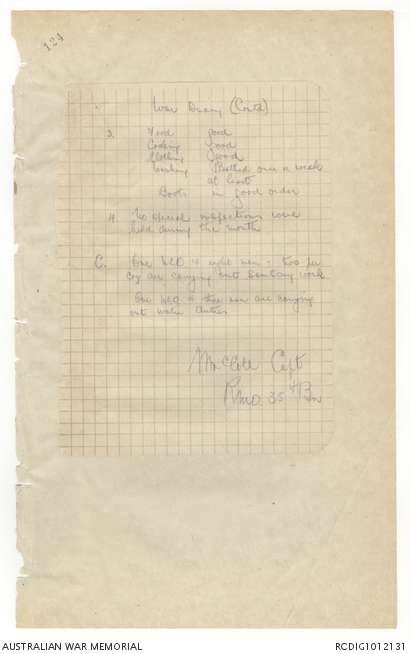 124
War Diary (Contd)
3. Food good
Cooking Good
Clothing Good
Bathing Bathed once a week
at least
Boots in good order
4. No special inspections were
held during the month
C. One NCO & eight men - two per
Coy are carrying out Sanitary work
One NCO & three men are carrying
out water duties
Capt
RMO 35th Bn
AUSTRALIAN WAR MEMORIAL
RCDIG1012131